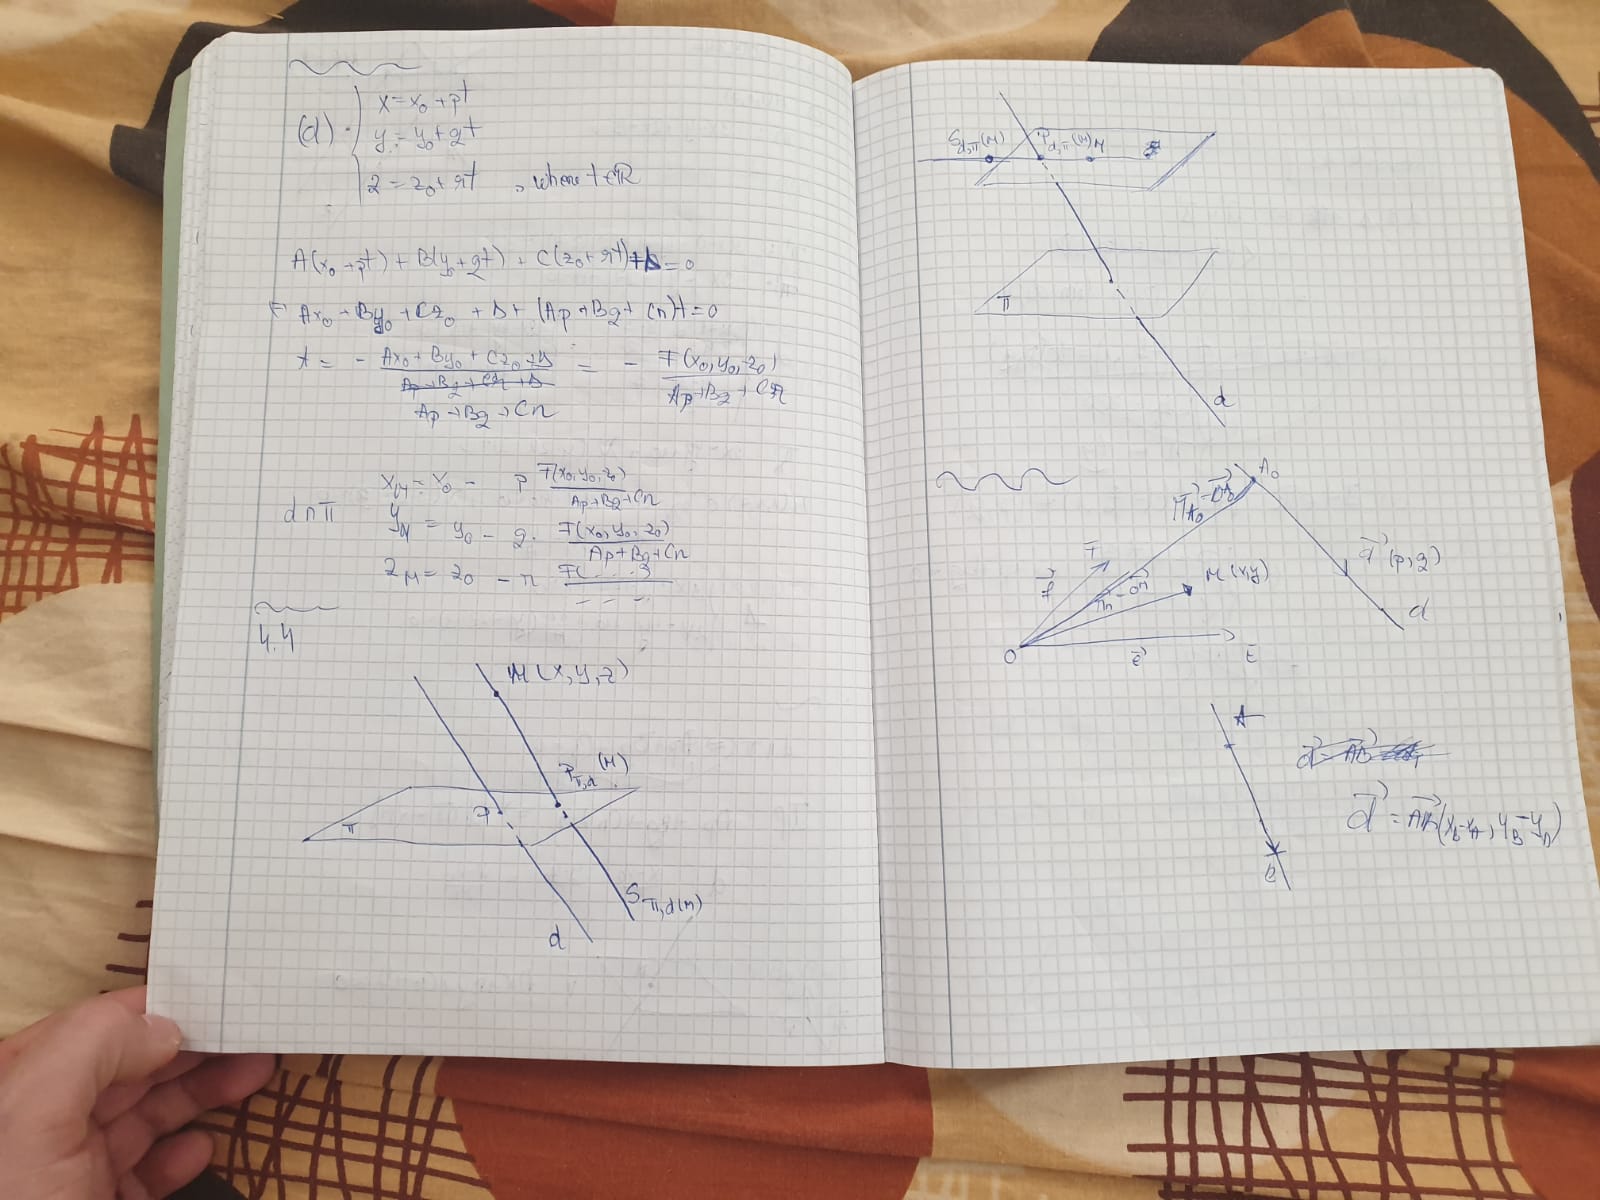 (d) { x = x₀ + pt
y = y₀ + qt
z = z₀ + rt , where t∈ℝ
A(x₀ + pt) + B(y₀ + qt) + C(z₀ + rt) + D = 0
Ax₀ + By₀ + Cz₀ + D + (Ap + Bq + Cr)t = 0
t = - (Ax₀ + By₀ + Cz₀ + D) / (Ap + Bq + Cr) = - F(x₀, y₀, z₀) / (Ap + Bq + Cr)
x_M = x₀ - p F(x₀, y₀, z₀) / (Ap + Bq + Cr)
d ∩ π
y_M = y₀ - q · F(x₀, y₀, z₀) / (Ap + Bq + Cr)
z_M = z₀ - r F(....) / - - -
4.4
M(x, y, z)
P_π,d (M)
P
π
S_π,d(M)
d
S_d,π(M)
P_d,π(M)
M
π
d
A₀
d⃗ (p, q)
M(x, y)
d
f⃗
F
O
e⃗
E
A
B
d⃗ = AB⃗ (x_B - x_A, y_B - y_A)